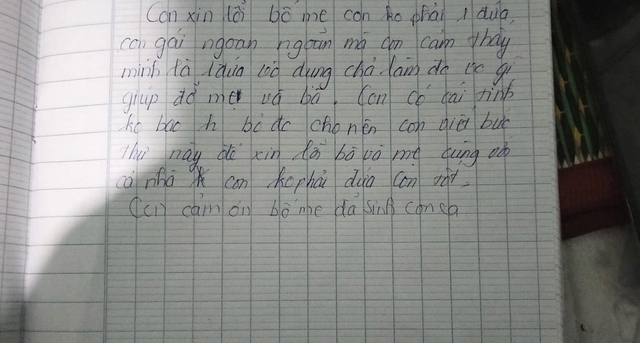 Con xin lỗi bố mẹ con ko phải 1 đứa
con gái ngoan ngoãn mà con cảm thấy
mình là 1 đứa vô dụng chả làm đc vc gì
giúp đỡ mẹ và bà. Con có cái tính
ko bỏ đc cho nên con viết bức
thư này để xin lỗi bố và mẹ cùng với
cả nhà con ko phải đứa con tốt.
Con cảm ơn bố mẹ đã sinh con ra